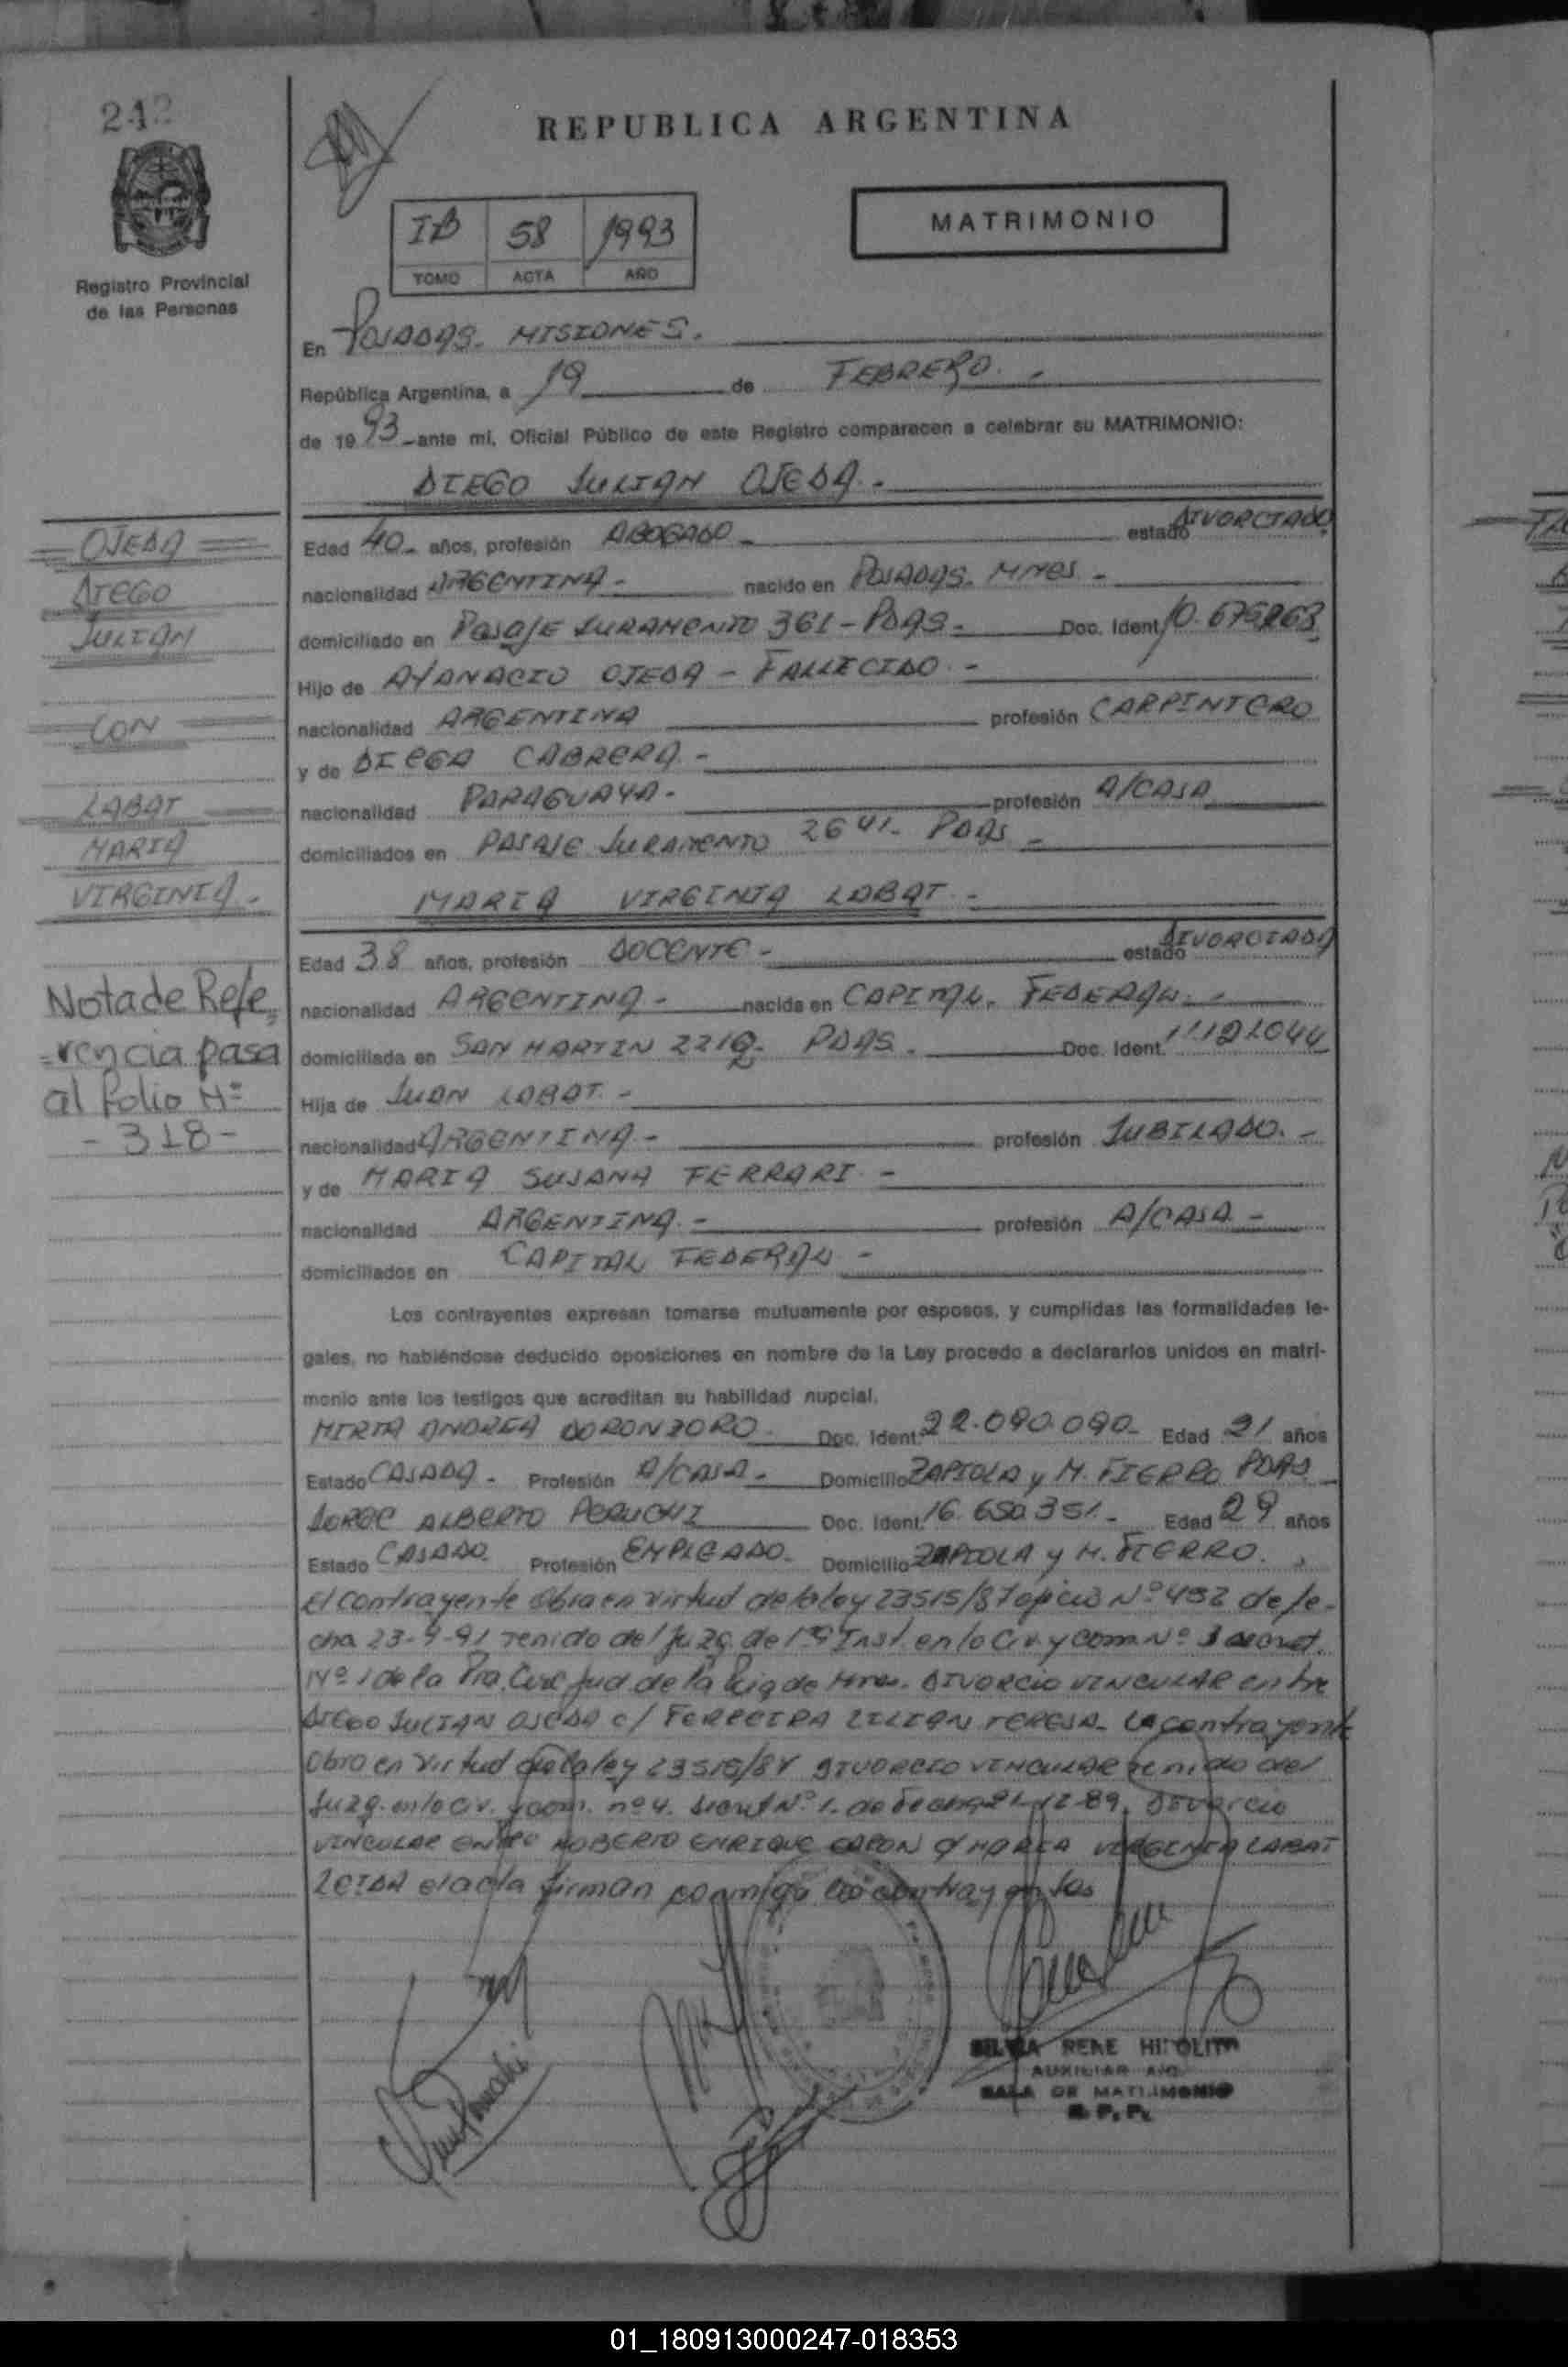 242
Registro Provincial
de las Personas
REPUBLICA ARGENTINA
IB 58 1993
TOMO ACTA AÑO
MATRIMONIO
En POSADAS. MISIONES.
República Argentina, a 19 de FEBRERO.-
de 1993 ante mí, Oficial Público de este Registro comparecen a celebrar su MATRIMONIO:
DIEGO JULIAN OJEDA.-
Edad 40.- años, profesión ABOGADO - estado DIVORCIADO.
nacionalidad ARGENTINA.- nacido en POSADAS. MNES -
domiciliado en PASAJE JURAMENTO 361 - PDAS.- Doc. Ident. 10.
Hijo de OJEDA - FALLECIDO.-
nacionalidad ARGENTINA profesión CARPINTERO
y de CABRERA.-
nacionalidad PARAGUAYA.- profesión A/CASA
domiciliados en PASAJE JURAMENTO 2641- PDAS -
MARIA VIRGINIA LABAT.-
Edad 38 años, profesión DOCENTE - estado DIVORCIADA
nacionalidad ARGENTINA - nacida en CAPITAL. FEDERAL. -
domiciliada en SAN MARTIN PDAS. Doc. Ident.
Hija de JUAN LABAT.-
nacionalidad ARGENTINA - profesión JUBILADO.-
y de MARIA SUSANA FERRARI -
nacionalidad ARGENTINA.- profesión A/CASA -
domiciliados en CAPITAL FEDERAL -
Los contrayentes expresan tomarse mutuamente por esposos, y cumplidas las formalidades le-
gales, no habiéndose deducido oposiciones en nombre de la Ley procedo a declararlos unidos en matri-
monio ante los testigos que acreditan su habilidad nupcial.
MIRTA ANDREA DORONZORO. Doc. Ident. 22.090.090- Edad 21 años
Estado CASADA - Profesión A/CASA - Domicilio ZAPIOLA y M. FIERRO PDAS
JORGE ALBERTO PERUCHI Doc. Ident. 16.650.351.- Edad 29 años
Estado CASADO. Profesión EMPLEADO. Domicilio ZAPIOLA y M. FIERRO.
El contrayente obra en virtud de la ley 23515/87 oficio Nº 432 de fe-
cha 23-9-91 venido del Juzg. de 1ra Inst. en lo Civ. y Com. Nº
Nº 1 de la Pra. Circ. Jud. de la DIVORCIO VINCULAR entre
DIEGO JULIAN OJEDA c/ FERREIRA LILIAN TERESA. La contrayente
obra en virtud de la ley 23515/87 DIVORCIO VINCULAR venido del
Juzg. en lo Civ. y Com. nº 4. Secret Nº 1. de fecha 21-12-89. Divorcio
VINCULAR entre ROBERTO ENRIQUE c/ MARIA VIRGINIA LABAT
LEIDA el acta firman conmigo los contrayentes
OJEDA
DIEGO
JULIAN
CON
LABAT
MARIA
VIRGINIA.-
Nota de Refe=
=rencia pasa
al folio Nº
- 318 -
SILVIA RENE HIPOLITO
AUXILIAR A/C
SALA DE MATRIMONIO
R. P. P.
01_180913000247-018353